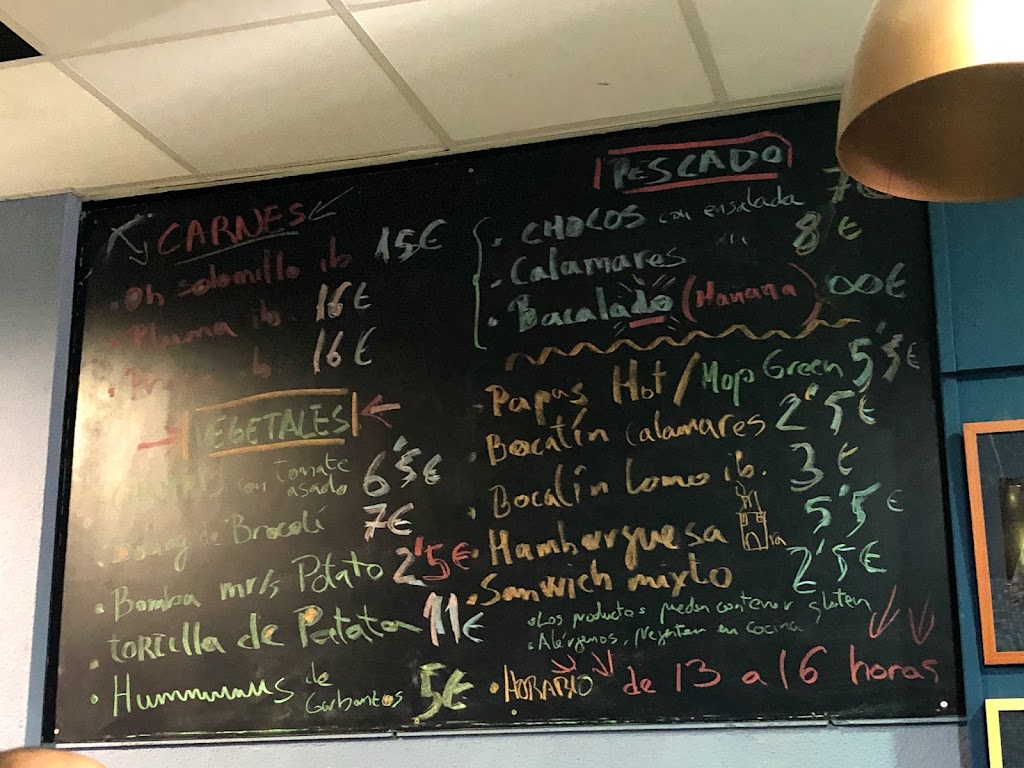 CARNES
• Oh solomillo ib 15€
• Pluma ib. 16€
• Presa ib 16€
VEGETALES
con tomate asado 6'5€
de Brocolí 7€
• Bomba mr/s Potato 2'5€
• torcilla de Patata 11€
• Hummmmus de Garbantos 5€
PESCADO
• CHOCOS con ensalada 7€
• Calamares 8€
• Bacalado (Mañana) ∞€
• Papas Hot/Mojo Green 5'5€
• Bocatín Calamares 2'5€
• Bocatín Lomo ib. 3€
• Hamburguesa 5'5€
• Sanwich mixto 2'5€
• Los productos pueden contener gluten
• Alérgenos, preguntar en cocina
• HORARIO de 13 a 16 horas